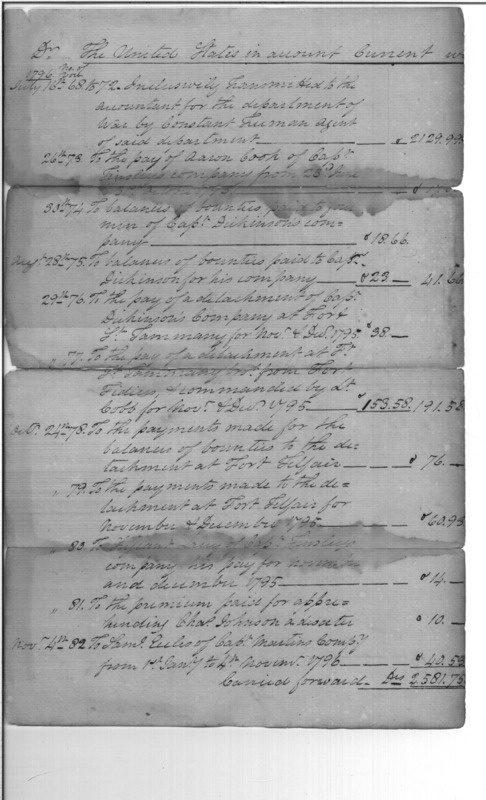 Dr. The United States in account Current w
1796 No. Vol.
July 16th 68 to 72. Inclusively Transmitted to the
accountant for the department of
War by Constant Freeman Agent
of said department $ 2129.99
26th 73 To the pay of Aaron Cook of Capt.
Tinsley's company from 23d June
30th 74 To balances of bounties paid to the
men of Capt. Dickinson's com=
pany $ 18.66
Augt. 28th 75. To balances of bounties paid to Capt.
Dickinson for his company $ 23 — 41.66
29th 76. To the pay of a detachment of Capt.
Dickinson's Company at Fort
St. Tammany for Novr. & Decr. 1795 $ 38. —
" 77. To the pay of a detachment at Ft.
St. Tammany from Fort
commanded by Lt.
Cobb for Novr. & Decr. 1795 $ 153.58. 191.58
Octr. 24th 78. To the payments made for the
balances of bounties to the de=
tachment at Fort Telfair $ 76. —
" 79. To the payments made to the de=
tachment at Fort Telfair for
November & December 1795 $ 60.93
" 80. To of Capt. Tinsley's
company his pay for november
and december 1795 $ 14. —
" 81. To the premium paid for appre=
hending Chas. Johnson a deserter $ 10. —
Novr. 4th 82 To Saml. of Capt. Martins Compy.
from 1st Jany. to 4th Novemr. 1796 $ 40.53
Carried forward Drs 2.581.75